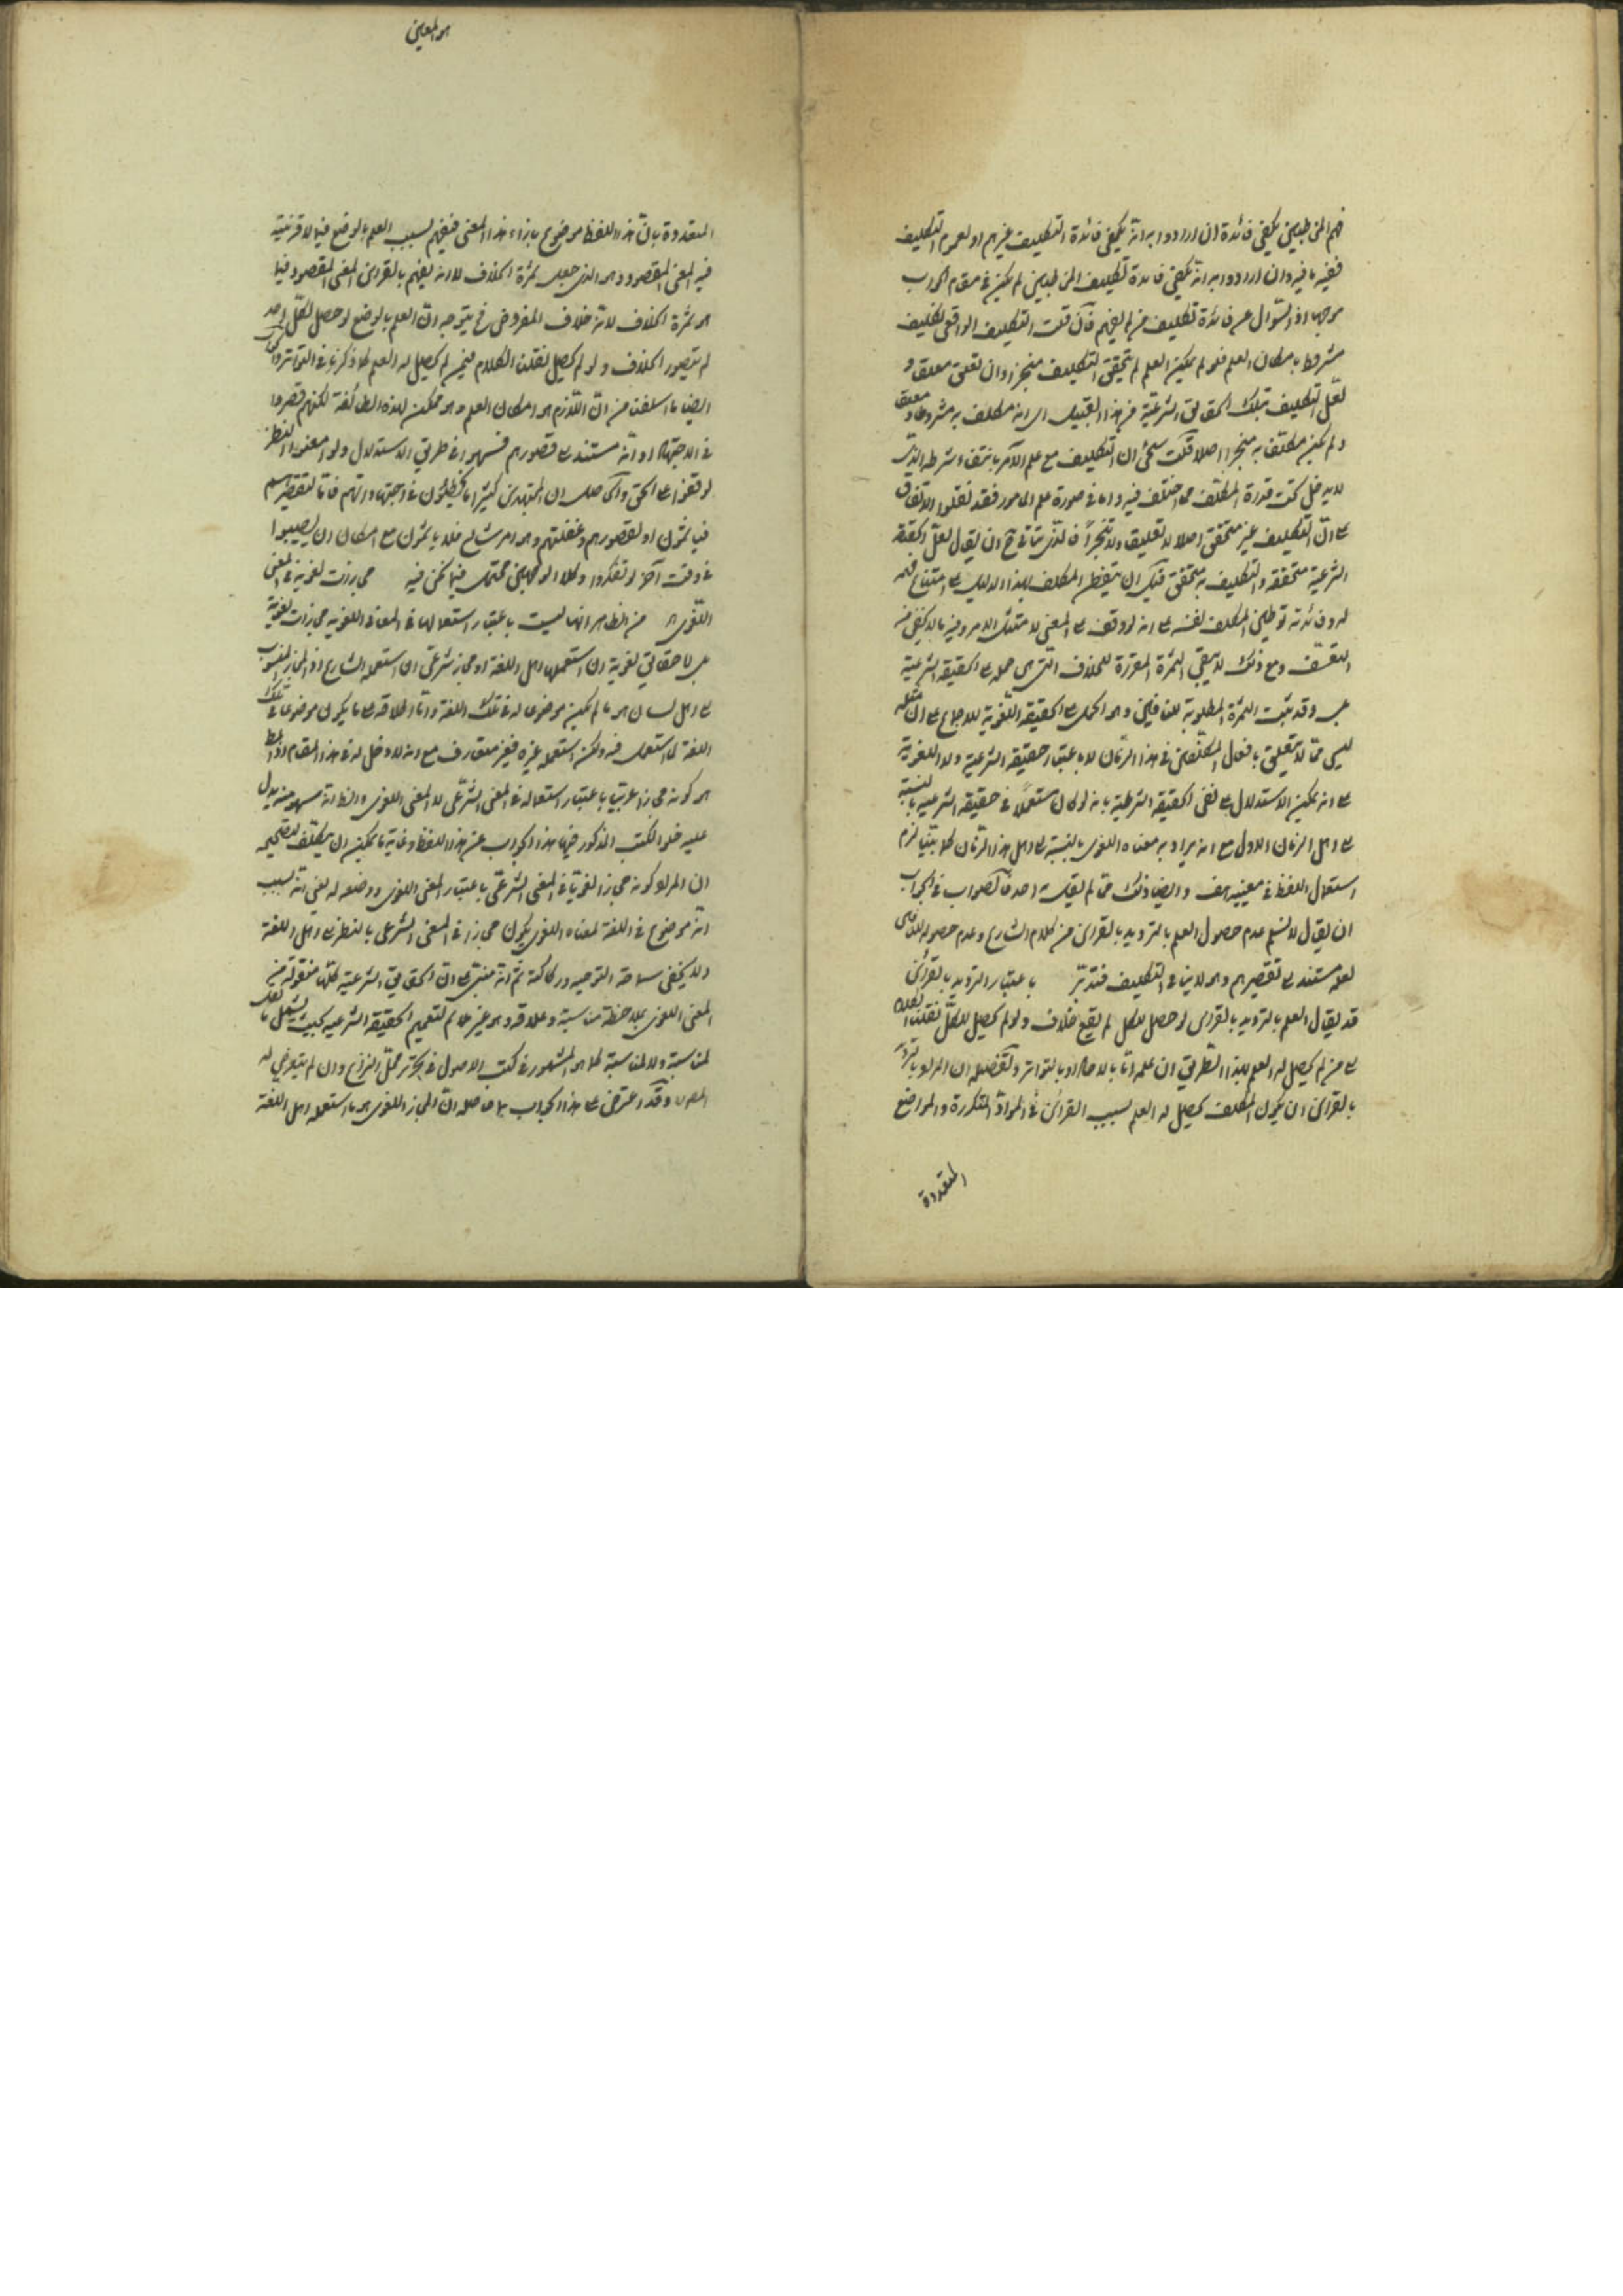 فهم المخاطبين يكفي فائدة ان ارادوا به انّه يكفي فائدة التكليف غيرهم او لعموم التكليف
ففيه ما فيه وان ارادوا به انّه يكفي فائدة تكليف المخاطبين لم يكن في مقام الجواب
موجها اذ السّؤال عن فائدة تكليف من لم يفهم فان قلت التكليف الواقعي تكليف
مشروط بامكان العلم فلو لم يمكن العلم لم يتحقق التكليف منجزا وان تعلق معلقا و
لعلّ التكليف بتلك الحقائق الشرعيّة من هذا القبيل اى انه مكلف به مشروطا و معلقا
ولم يكن مكلّف به منجزا اصلا قلت سيجئ ان التكليف مع علم الآمر بانتفاء شرطه الذى
لا يدخل تحت قدرة المكلف مما اختلف فيه واما في صورة علم المامور فقد نقلوا الاتفاق
على انّ التكليف غير متحقق اصلا لا تعليقا ولا تنجيزاً فالذى يتاتى ح ان يقال لعلّ الحقيقة
الشرعية متحققة والتكليف به متحقق قبل ان يتفطن المكلف بهذا الدليل على امتناع فهمه
له وفائدته توطين المكلف نفسه على انه لو وقف على المعنى لامتثل الامر وفيه ما لا يخفى من
التعسّف ومع ذلك لا يبقى الثمرة المقررة للخلاف الّتى هى حمله على الحقيقة الشرعية
بل وقد يثبت الثمرة المطلوبة للنافين وهو الحمل على الحقيقة اللّغوية للاجماع على ان مثله
ليس ممّا لا يتعلق بافعال المكلّفين في هذا الزمان لا باعتبار حقيقته الشرعية ولا اللغوية
على انه يمكن الاستدلال على نفى الحقيقة الشرعية بانه لو كان مستعملاً في حقيقته الشرعيه بالنسبة
على اهل الزمان الاول مع انه يراد به معناه اللغوى بالنسبة على اهل هذا الزّمان كما بيّنا لزم
استعمال اللفظ في معنييه هف وايضا ذلك ممّا لم يقل به احد فالصواب في الجواب
ان يقال لا نسلم عدم حصول العلم بالترديد بالقراين من كلام الشارع وعدم حصوله للنافى
لعله مستند على تقصيرهم وهو لا ينافى التكليف فتدبّر باعتبار الترديد بالقرائن
قد يقال العلم بالترديد بالقراين لو حصل للكل لم يقع خلاف ولو لم يحصل للكلّ نقلنا الكلام
على من لم يحصل له العلم بهذا الطريق ان علمه امّا بالآحاد او بالتواتر وتفصيله ان المراد بالترديد
بالقرائن ان يكون المكلف يحصل له العلم بسبب القرائن في الموادّ المتكررة والمواضع
المتعددة
هو المعين
المتعددة بانّ هذا اللفظ موضوع بازاء هذا المعنى فيفهم بسبب العلم بالوضع فيما لا قرينة
فيه المعنى المقصود وهو الذى جعل ثمرة الخلاف لا انه يفهم بالقراين المعنى المقصود فيما
هو ثمرة الخلاف لانّه خلاف المفروض فح يتوجه انّ العلم بالوضع لو حصل لكلّ احد
لم يتصور الخلاف ولو لم يحصل نقلنا الكلام فيمن لم يحصل له العلم كما ذكرنا في التواتر والجواب
ايضا ما اسلفنا من انّ اللّازم هو امكان العلم وهو ممكن لهذه الطائفة لكنهم قصروا
في الاجتهاد او انّه مستند على قصورهم فسهوا في طريق الاستدلال ولو امعنوا النظر
لوقفوا على الحق والحاصل ان المجتهدين كثيرا ما يخطئون في اجتهاداتهم فاما لتقصيرهم
فياثمون او لقصورهم وغفلتهم وهو امر شايع فلا ياثمون مع امكان ان يصيبوا
في وقت آخر لو تفكروا وكلا الوجهين محتمل فيما نحن فيه مجازات لغوية في المعنى
اللّغوى من الظاهر انها ليست باعتبار استعمالها في المعانى اللغويه مجازات لغوية
بل اما حقائق لغوية ان استعملها اهل اللغة او مجاز شرعىّ ان استعمله الشارع اذ المجاز المنسوب
على اهل لسان هو ما لم يكن موضوعا له في تلك اللغة وامّا اطلاقه على ما يكون موضوعا في تلك
اللغة لما استعمل فيه ولكنه استعمله غيره فغير متعارف مع انه لا دخل له في هذا المقام اذ المط
هو كونه مجازا عربيا باعتبار استعماله في المعنى الشرعّى لا المعنى اللغوى والظ انه سهو منه يدل
عليه خلو الكتب المذكور فيها هذا الجواب عن هذا اللفظ وغاية ما يمكن ان يتكلّف لتصحيحه
ان المراد كونه مجازا لغويّا في المعنى الشرعّى باعتبار المعنى اللغوى ووضعه له يعنى انّه بسبب
انّه موضوع في اللغة لمعناه اللغوى يكون مجازا في المعنى الشرعى بالنظر على اهل اللغة
ولا يخفى سماجة التوجيه وركاكته ثم انّه مبنىّ على انّ الحقايق الشرعية كلّها منقولة من
المعنى اللغوى بملاحظة مناسبة وعلاقة وهو غير ملائم لتعميم الحقيقة الشرعيه بحيث يشمل ما نقل
لمناسبة ولا لمناسبة كما هو المشهور في كتب الاصول في تحرير محلّ النزاع وان لم يتعرض له
المص وقد اعترض على هذا الجواب بما حاصله انّ المجاز اللغوى هو ما استعمله اهل اللغة